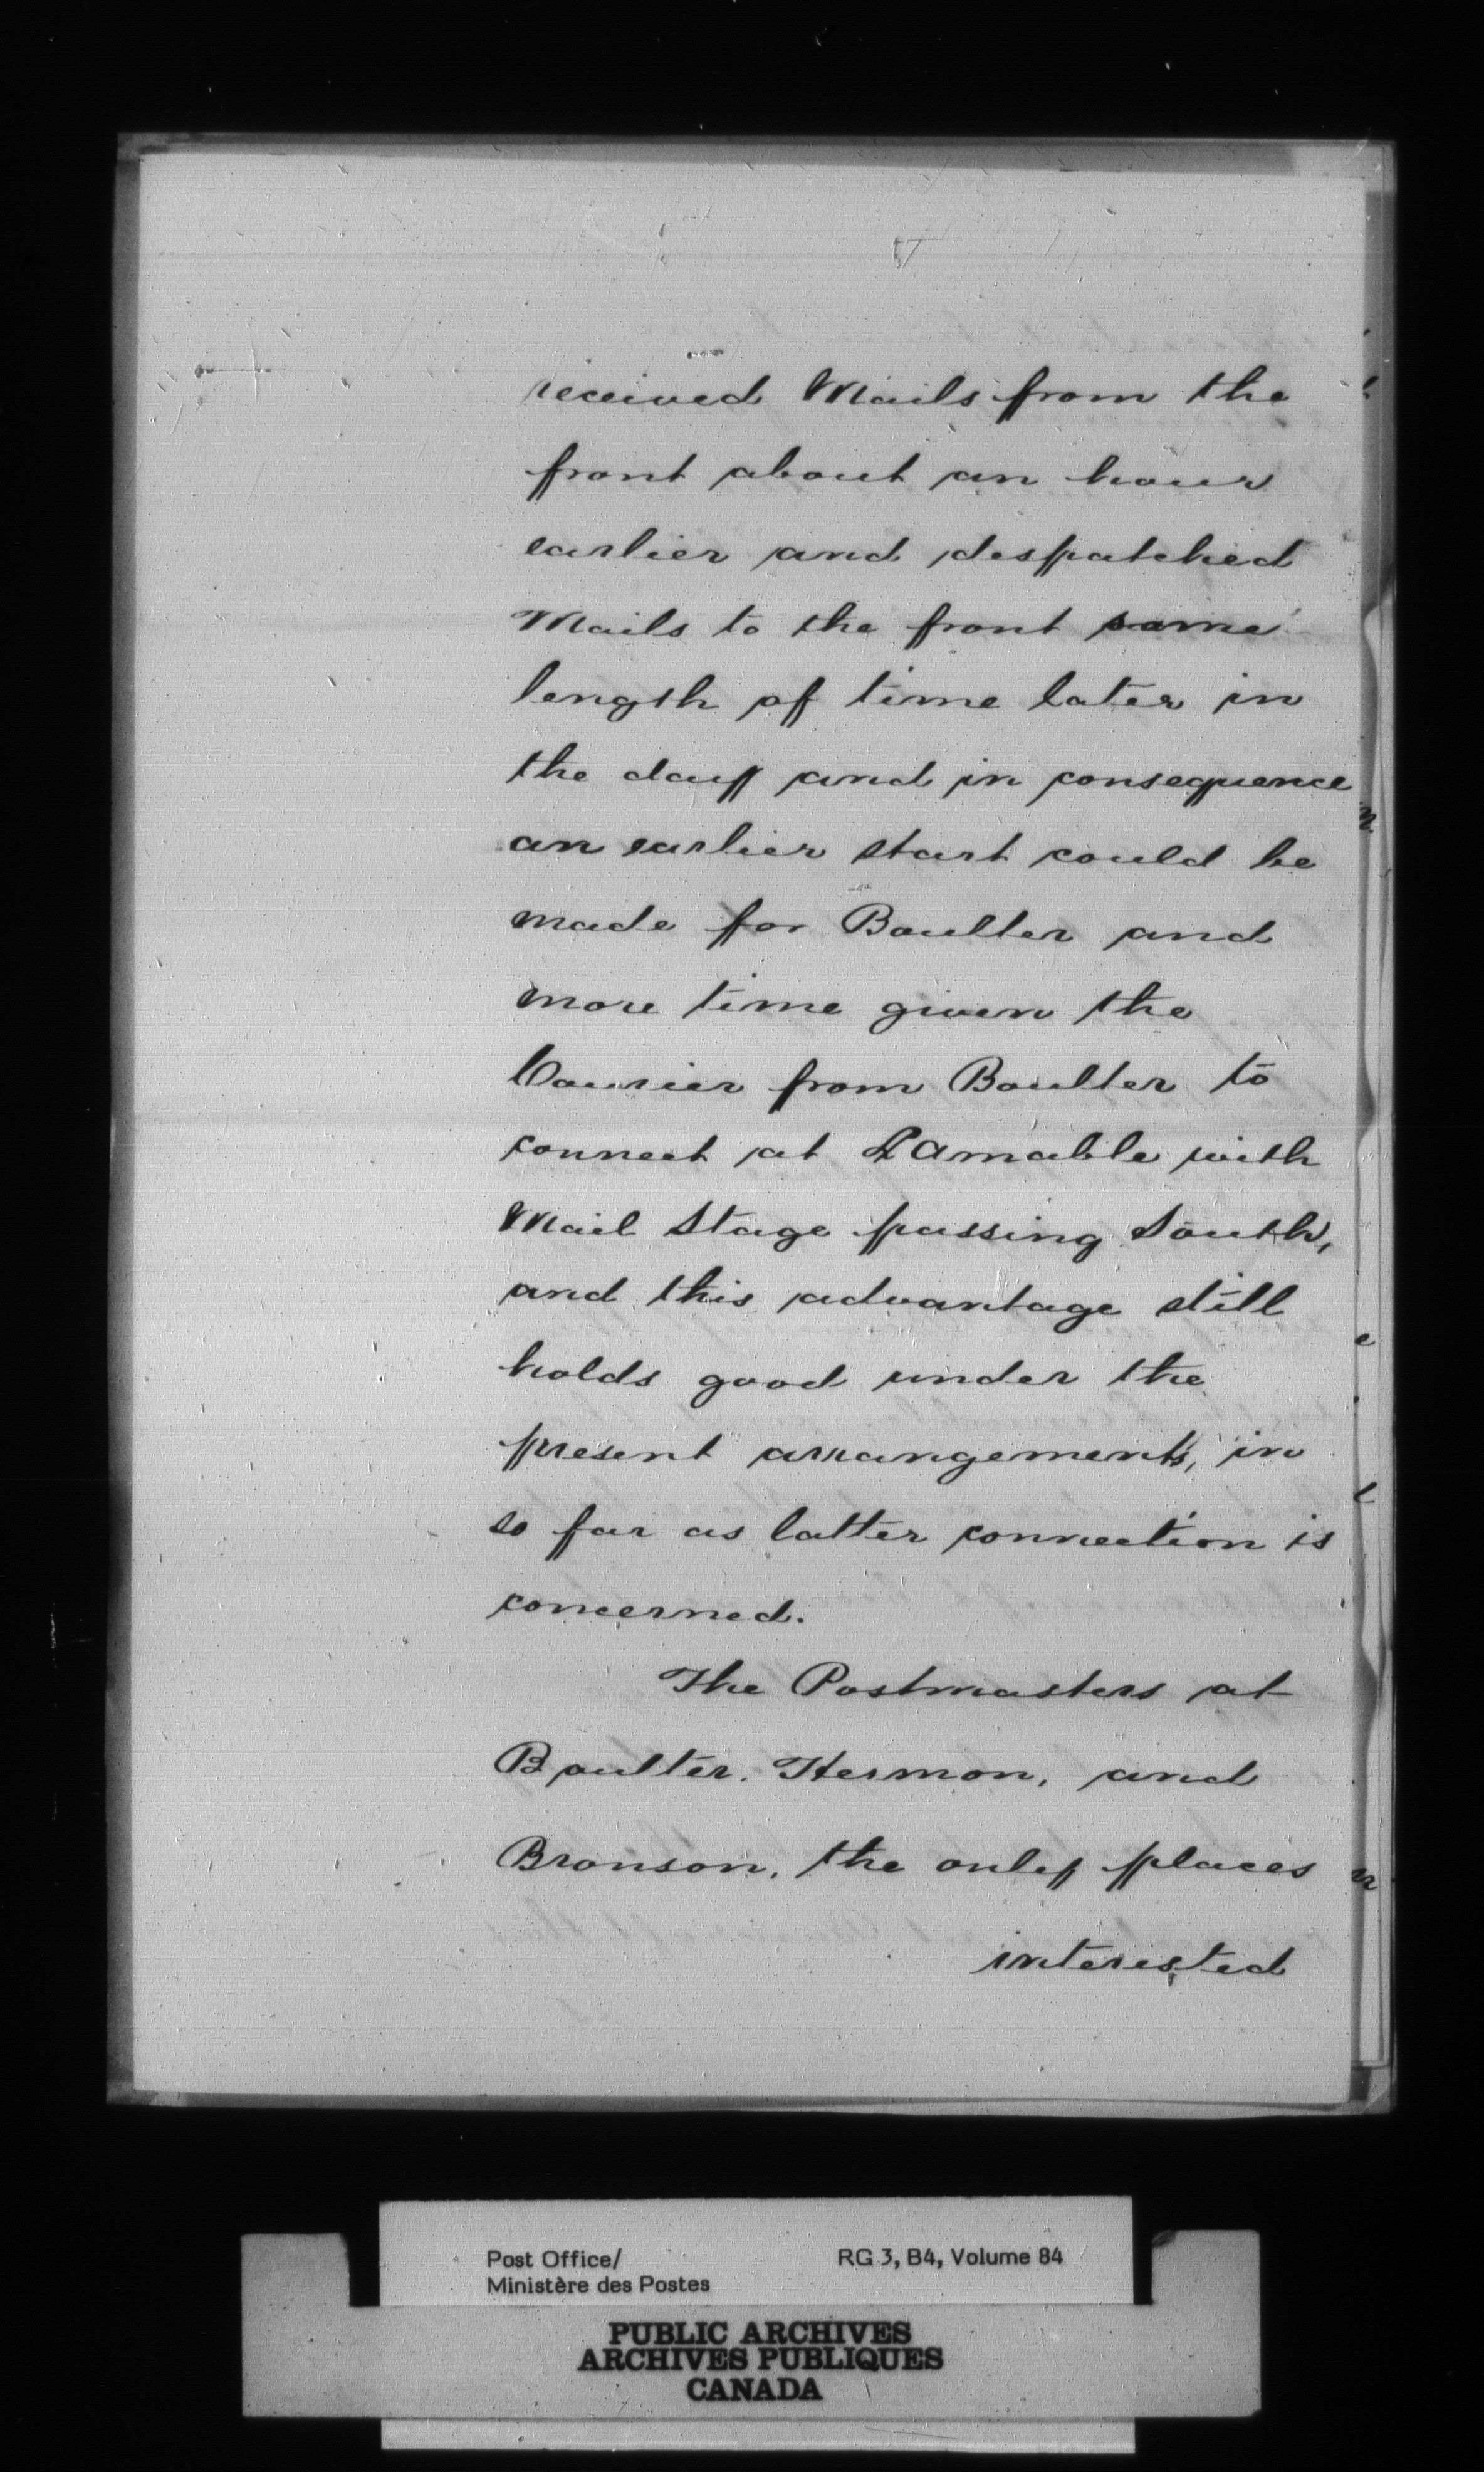 received Mails from the
front about an hour
earlier and despatched
Mails to the front same
length of time later in
the day and in consequence
an earlier start could be
made for Boulter and
more time given the
Courier from Boulter to
connect at L'Amable with
Mail Stage passing South,
and this advantage still
holds good under the
present arrangements, in
so far as latter connection is
concerned.
The Postmasters at
Boulter, Hermon, and
Bronson, the only places
interested
Post Office/
Ministère des Postes
RG 3, B4, Volume 84
PUBLIC ARCHIVES
ARCHIVES PUBLIQUES
CANADA